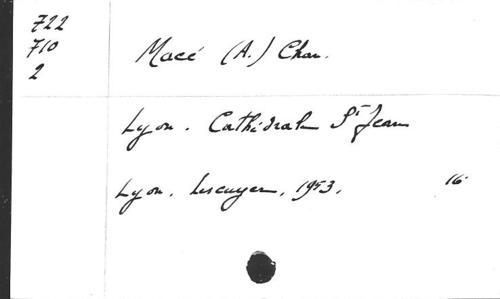 722
710
2
Macé (A.) Chan.
Lyon. Cathédrale St Jean
Lyon. Lescuyer, 1953. 16